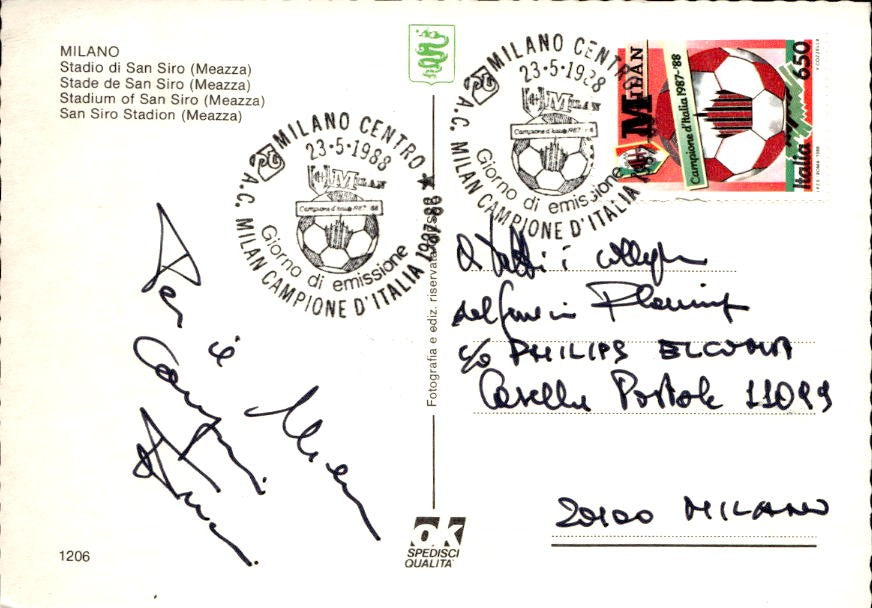 MILANO
Stadio di San Siro (Meazza)
Stade de San Siro (Meazza)
Stadium of San Siro (Meazza)
San Siro Stadion (Meazza)
MILANO CENTRO
23-5-1988
MILAN
Campione d'Italia 1987-'88
Giorno di emissione
A.C. MILAN CAMPIONE D'ITALIA 1987-88
MILANO CENTRO
23-5-1988
MILAN
Campione d'Italia 1987-'88
Giorno di emissione
A.C. MILAN CAMPIONE D'ITALIA 1987-88
MILAN
Campione d'Italia 1987-'88
Italia 650
Per il Milan
Fotografia e ediz. riservata
i colleghi
Planning
c/o PHILIPS ELCOMA
Casella Postale 11099
20100 MILANO
1206
ok
SPEDISCI
QUALITA'